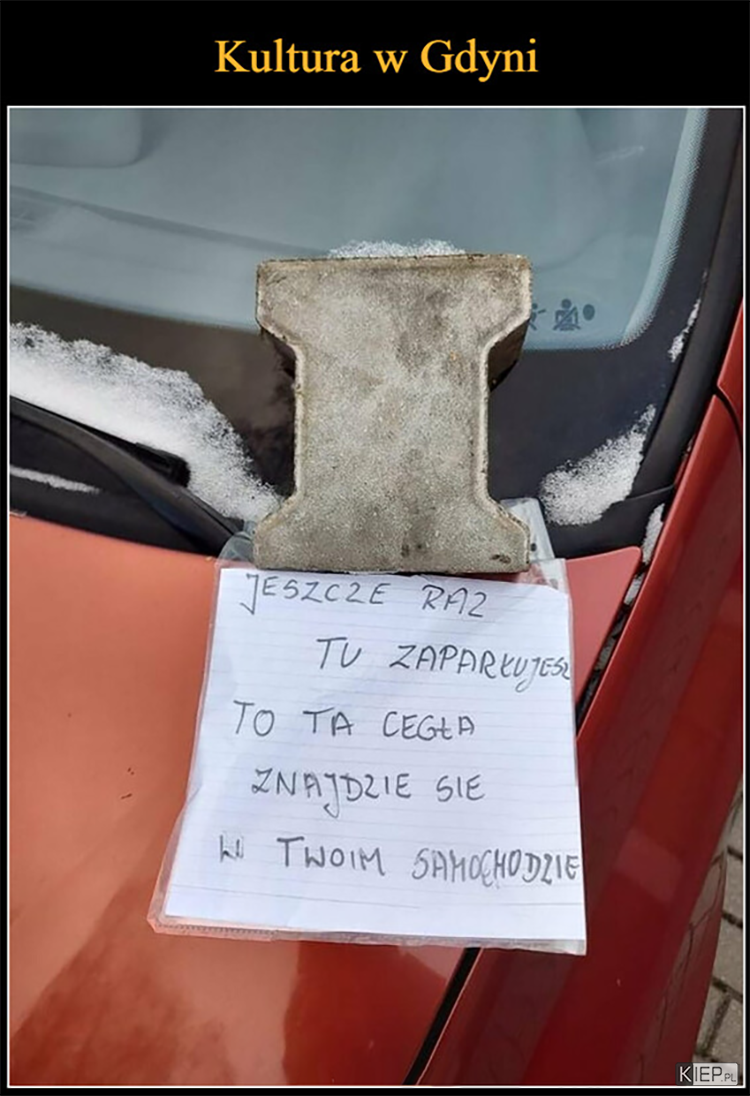 Kultura w Gdyni
JESZCZE RAZ
TU ZAPARKUJESZ
TO TA CEGŁA
ZNAJDZIE SIE
W TWOIM SAMOCHODZIE
KIEP.PL